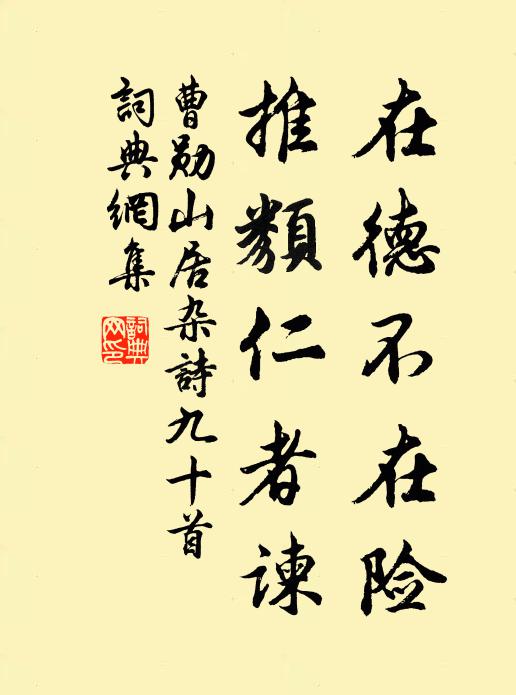 在德不在险
推類仁者谏
曹勋山居杂詩九十首
詞典網集
詞典网印